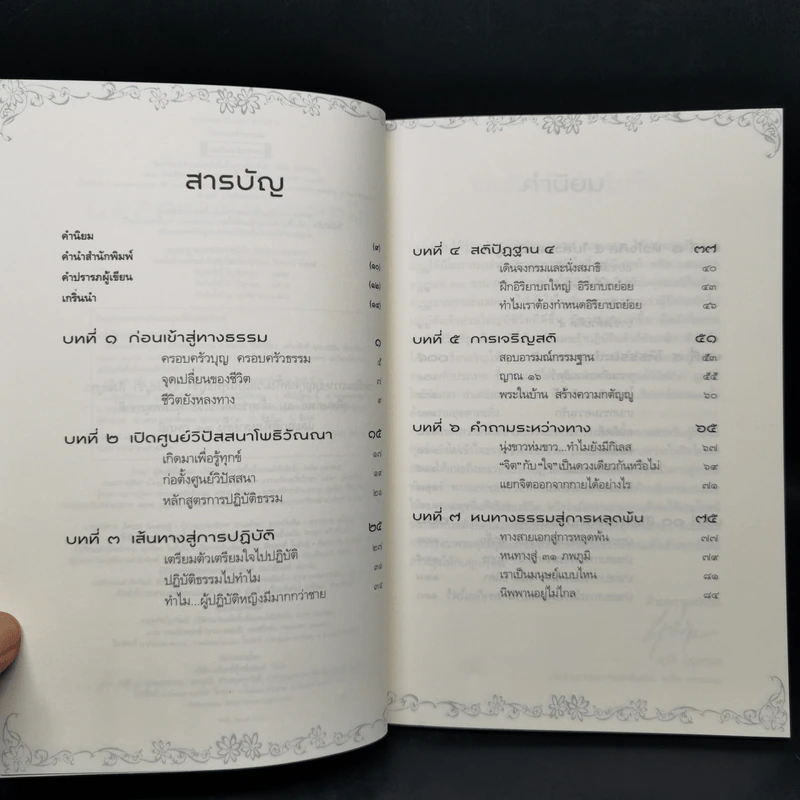 สารบัญ
คำนิยม (๙)
คำนำสำนักพิมพ์ (๑๐)
คำปรารภผู้เขียน (๑๒)
เกริ่นนำ (๑๔)
บทที่ ๑ ก่อนเข้าสู่ทางธรรม ๑
ครอบครัวบุญ ครอบครัวธรรม ๕
จุดเปลี่ยนของชีวิต ๗
ชีวิตยังหลงทาง ๙
บทที่ ๒ เปิดศูนย์วิปัสสนาโพธิวัณณา ๑๕
เกิดมาเพื่อรู้ทุกข์ ๑๗
ก่อตั้งศูนย์วิปัสสนา ๑๙
หลักสูตรการปฏิบัติธรรม ๒๑
บทที่ ๓ เส้นทางสู่การปฏิบัติ ๒๕
เตรียมตัวเตรียมใจไปปฏิบัติ ๒๗
ปฏิบัติธรรมไปทำไม ๓๑
ทำไม...ผู้ปฏิบัติหญิงมีมากกว่าชาย ๓๔
บทที่ ๔ สติปัฏฐาน ๔ ๓๗
เดินจงกรมและนั่งสมาธิ ๔๐
ฝึกอิริยาบถใหญ่ อิริยาบถย่อย ๔๓
ทำไมเราต้องกำหนดอิริยาบถย่อย ๔๖
บทที่ ๕ การเจริญสติ ๕๑
สอบอารมณ์กรรมฐาน ๕๓
ญาณ ๑๖ ๕๕
พระในบ้าน สร้างความกตัญญู ๖๐
บทที่ ๖ คำถามระหว่างทาง ๖๕
นุ่งขาวห่มขาว...ทำไมยังมีกิเลส ๖๗
“จิต” กับ “ใจ” เป็นดวงเดียวกันหรือไม่ ๖๙
แยกจิตออกจากกายได้อย่างไร ๗๑
บทที่ ๗ หนทางธรรมสู่การหลุดพ้น ๗๕
ทางสายเอกสู่การหลุดพ้น ๗๗
หนทางสู่ ๓๑ ภพภูมิ ๗๙
เราเป็นมนุษย์แบบไหน ๘๑
นิพพานอยู่ไม่ไกล ๘๔